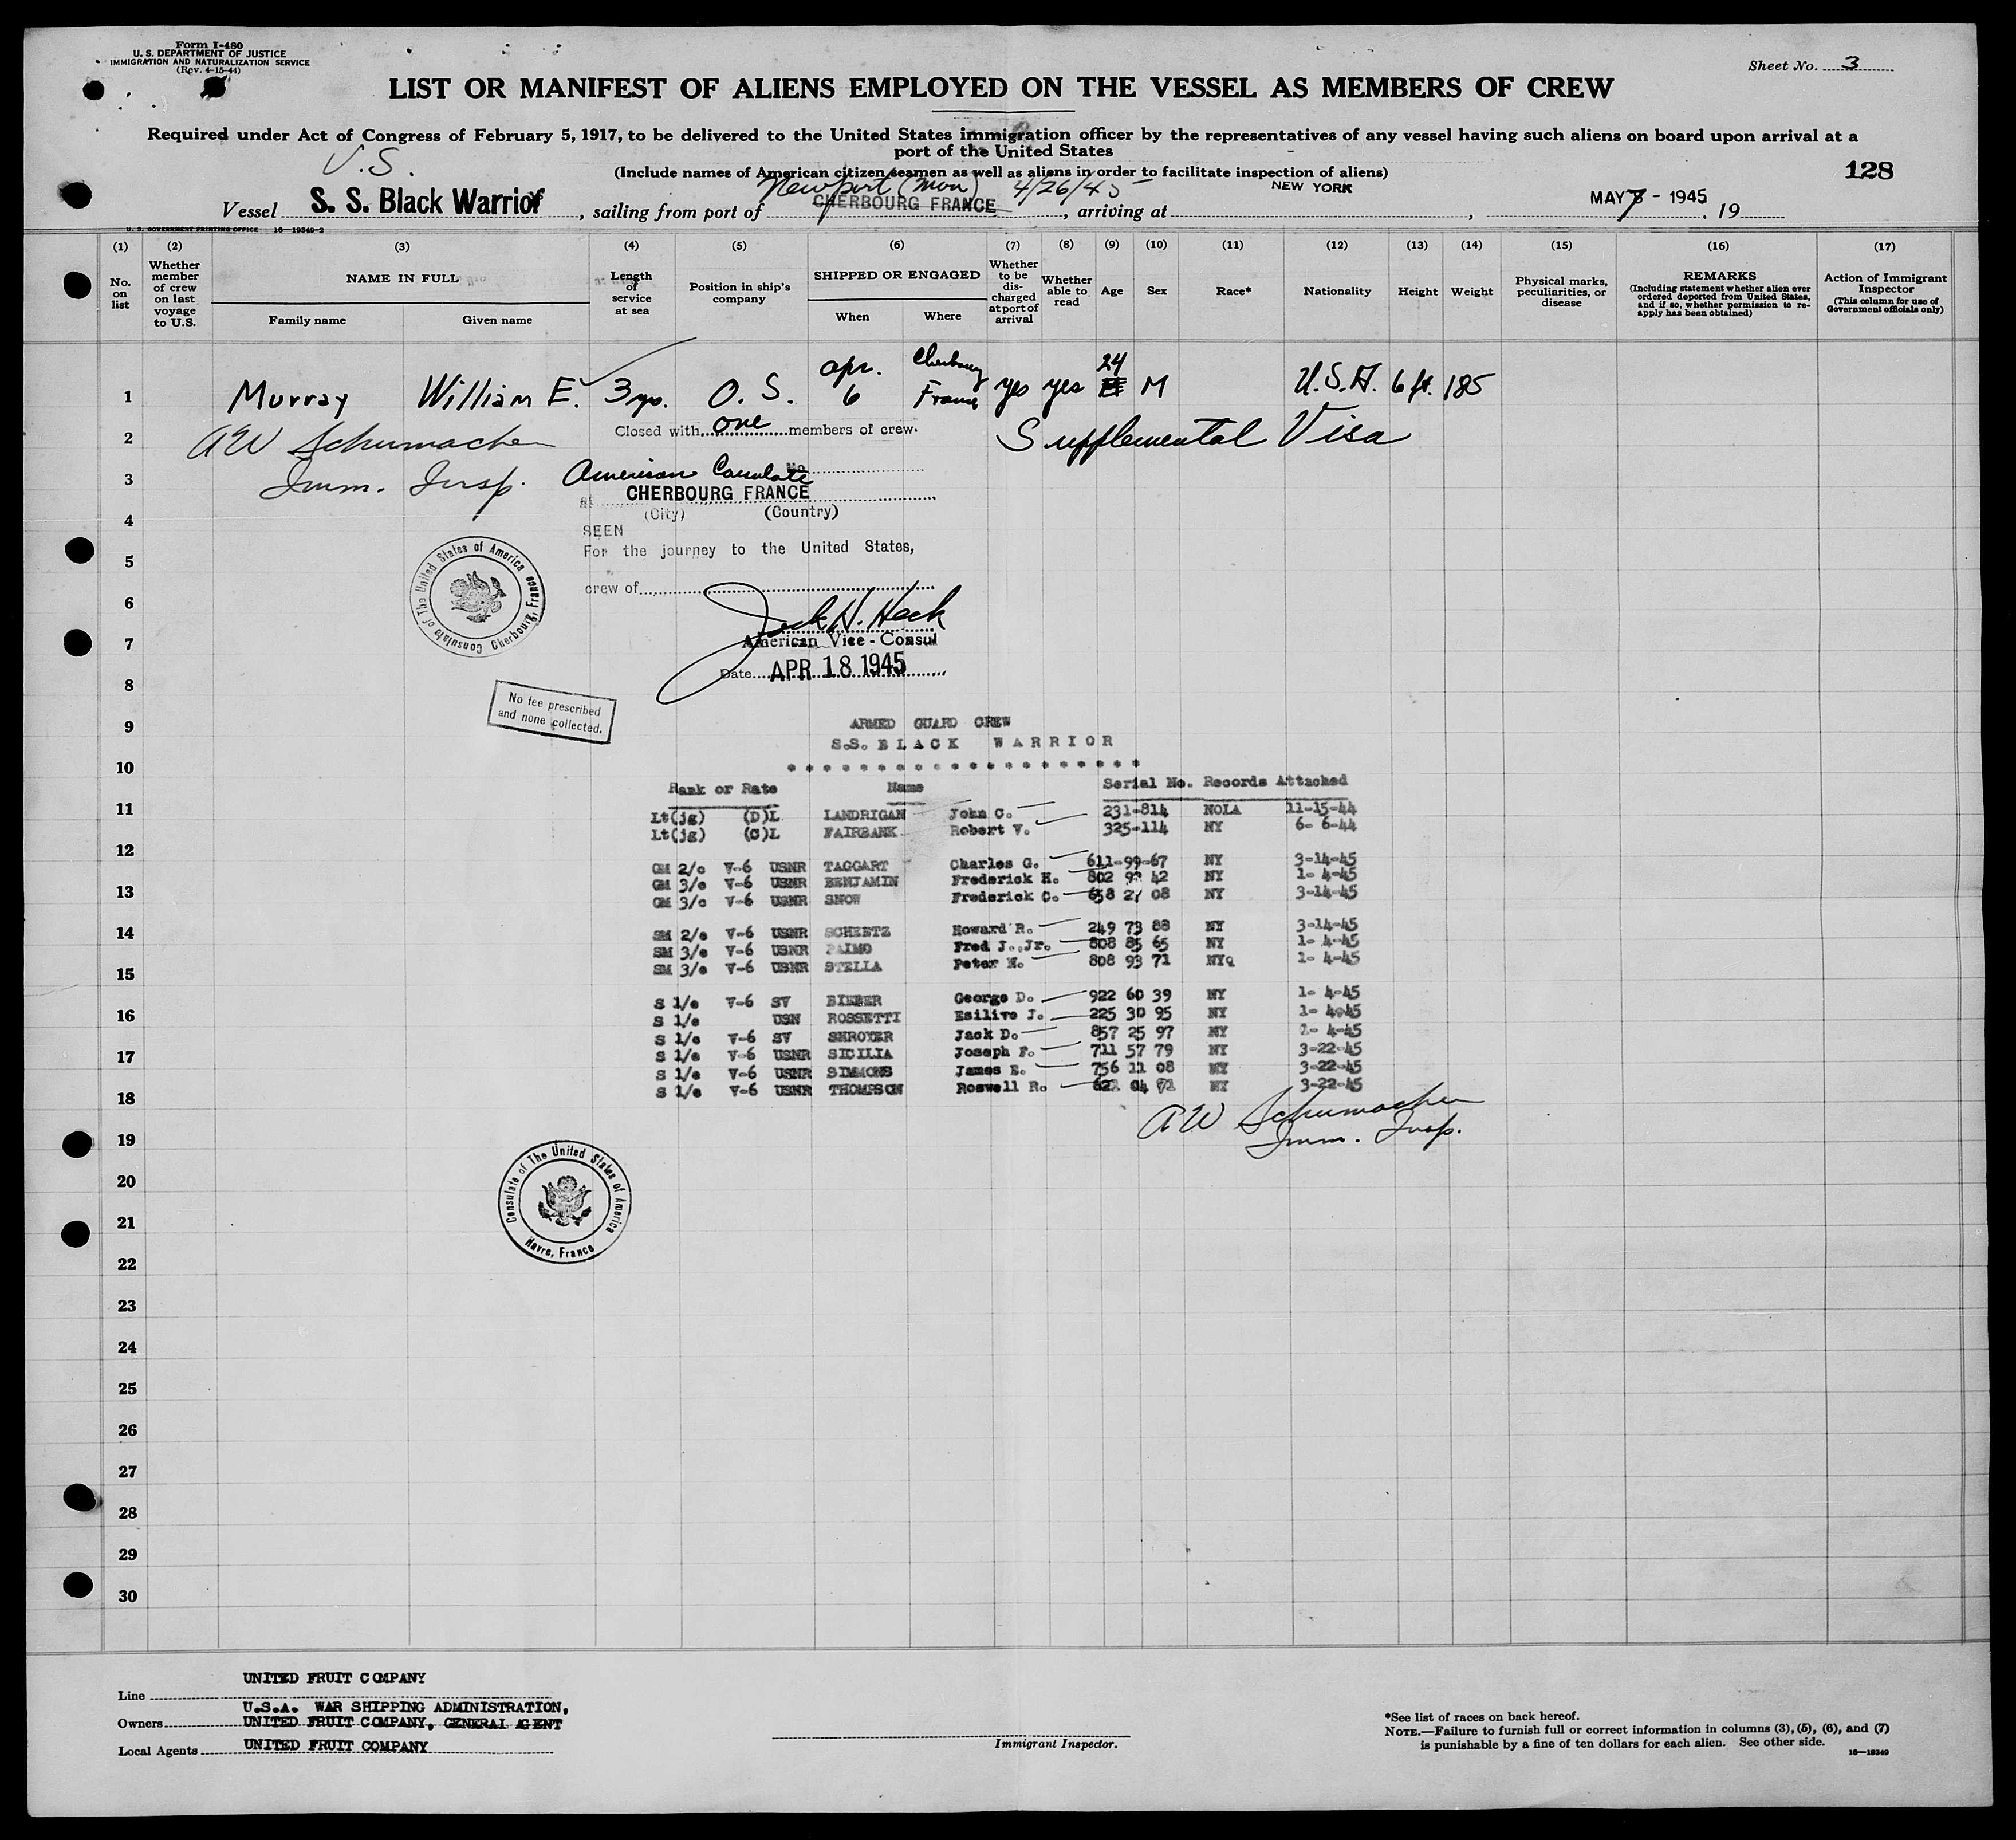 Form I-480
U. S. DEPARTMENT OF JUSTICE
IMMIGRATION AND NATURALIZATION SERVICE
(Rev. 4-15-44)
Sheet No. 3
LIST OR MANIFEST OF ALIENS EMPLOYED ON THE VESSEL AS MEMBERS OF CREW
Required under Act of Congress of February 5, 1917, to be delivered to the United States immigration officer by the representatives of any vessel having such aliens on board upon arrival at a
port of the United States
(Include names of American citizen seamen as well as aliens in order to facilitate inspection of aliens)
128
U.S.
Newport (Mon) 4/26/45
Vessel S. S. Black Warrior, sailing from port of CHERBOURG FRANCE, arriving at NEW YORK, MAY 7 - 1945, 19
U. S. GOVERNMENT PRINTING OFFICE 16-19349-2
(1) (2) (3) (4) (5) (6) (7) (8) (9) (10) (11) (12) (13) (14) (15) (16) (17)
No. on list
Whether member of crew on last voyage to U.S.
NAME IN FULL
Family name Given name
Length of service at sea
Position in ship's company
SHIPPED OR ENGAGED
When Where
Whether to be discharged at port of arrival
Whether able to read
Age
Sex
Race*
Nationality
Height
Weight
Physical marks, peculiarities, or disease
REMARKS
(Including statement whether alien ever ordered deported from United States, and if so, whether permission to reapply has been obtained)
Action of Immigrant Inspector
(This column for use of Government officials only)
1 Murray William E. 3 yrs. O. S. Apr. 6 Cherbourg France yes yes 24 M U.S.A. 6 ft. 185
Closed with one members of crew.
2 AW Schumacher Supplemental Visa
3 Imm. Insp. American Consulate No
at CHERBOURG FRANCE
4 (City) (Country)
SEEN
5 For the journey to the United States,
Consulate of The United States of America Cherbourg, France
6 crew of
Jack H. Heck
7 American Vice-Consul
8 Date APR 18 1945
No fee prescribed
and none collected.
9 ARMED GUARD CREW
S.S. BLACK WARRIOR
10 * * * * * * * * * * * * * * * * * * * *
Rank or Rate Name Serial No. Records Attached
11 Lt(jg) (D)L LANDRIGAN John C. 231-814 NOLA 11-15-44
Lt(jg) (C)L FAIRBANK Robert V. 325-114 NY 6- 6-44
12
GM 2/c V-6 USNR TAGGART Charles G. 611-99-67 NY 3-14-45
GM 3/c V-6 USNR BENJAMIN Frederick H. 802 92 42 NY 1- 4-45
13 GM 3/c V-6 USNR SNOW Frederick C. 658 27 08 NY 3-14-45
14 SM 2/c V-6 USNR SCHEETZ Howard R. 249 73 88 NY 3-14-45
SM 3/c V-6 USNR PAIMO Fred J., Jr. 808 85 65 NY 1- 4-45
15 SM 3/c V-6 USNR STELLA Peter N. 808 93 71 NY 1- 4-45
S 1/c V-6 SV BIEBER George D. 922 60 39 NY 1- 4-45
16 S 1/c USN ROSSETTI Esilivo J. 225 30 95 NY 1- 4-45
S 1/c V-6 SV SHROYER Jack D. 857 25 97 NY 1- 4-45
17 S 1/c V-6 USNR SICILIA Joseph F. 711 57 79 NY 3-22-45
S 1/c V-6 USNR SIMMONS James E. 756 11 08 NY 3-22-45
S 1/c V-6 USNR THOMPSON Roswell R. 621 04 71 NY 3-22-45
18
AW Schumacher
19 Imm. Insp.
Consulate of The United States of America Havre, France
20
21
22
23
24
25
26
27
28
29
30
Line UNITED FRUIT COMPANY
U.S.A. WAR SHIPPING ADMINISTRATION,
Owners UNITED FRUIT COMPANY, GENERAL AGENT
Local Agents UNITED FRUIT COMPANY
Immigrant Inspector.
*See list of races on back hereof.
NOTE.—Failure to furnish full or correct information in columns (3), (5), (6), and (7)
is punishable by a fine of ten dollars for each alien. See other side.
16—19349